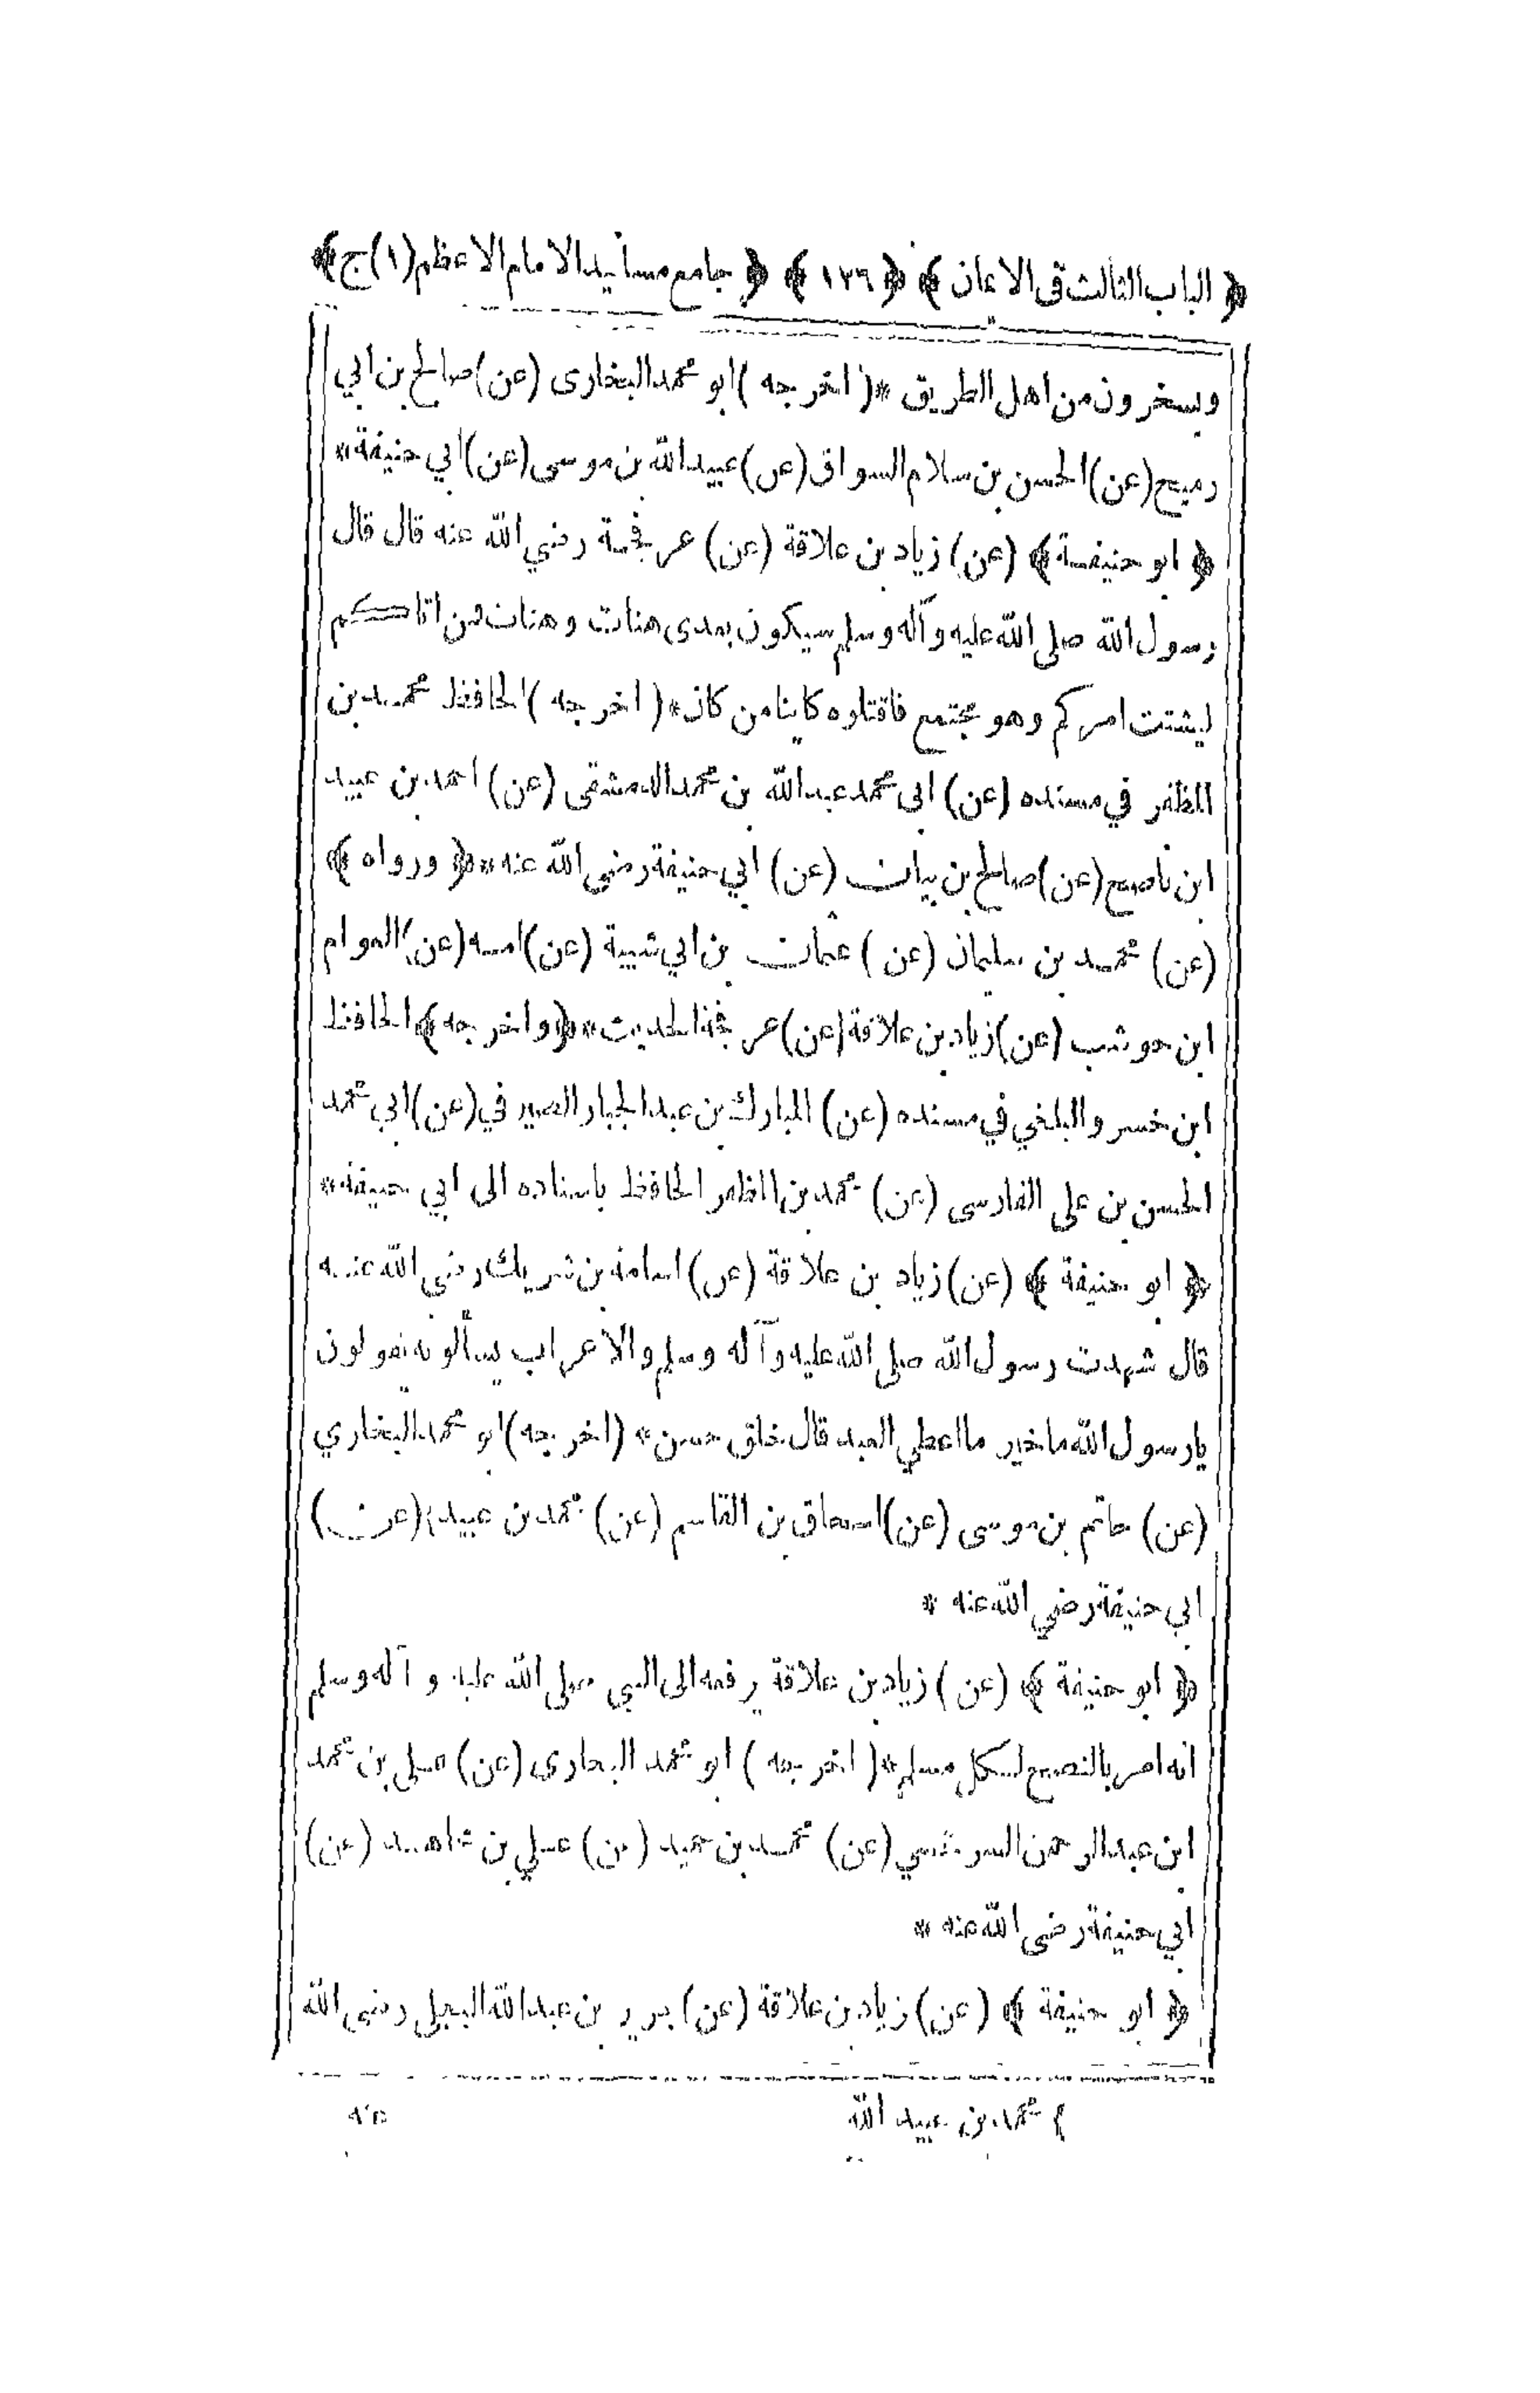 ﴿ الباب الثالث فى الايمان ﴾ ﴿ ١٢٦ ﴾ ﴿ جامع مسانيد الامام الاعظم (١) ج ﴾
ويسخرون من اهل الطريق *( اخرجه ) ابو محمد البخارى (عن) صالح بن ابي
رميح (عن) الحسن بن سلام السواق (عن) عبيد الله بن موسى (عن) ابي حنيفة *
﴿ ابو حنيفة ﴾ (عن) زياد بن علاقة (عن) عرفجة رضي الله عنه قال قال
رسول الله صلى الله عليه وآله وسلم سيكون بعدى هنات وهنات فمن اتاكم
ليشتت امركم وهو مجتمع فاقتلوه كاينا من كان *( اخرجه ) الحافظ محمد بن
المظفر في مسنده (عن) ابى محمد عبد الله بن محمد الدمشقى (عن) احمد بن عبيد
ابن ناصح (عن) صالح بن بيان (عن) ابي حنيفة رضي الله عنه * ﴿ ورواه ﴾
(عن) محمد بن سليمان (عن) عثمان بن ابي شيبة (عن) امه (عن) العوام
ابن حوشب (عن) زياد بن علاقة (عن) عرفجة الحديث * ﴿ واخرجه ﴾ الحافظ
ابن خسرو البلخي في مسنده (عن) المبارك بن عبد الجبار الصيرفي (عن) ابي محمد
الحسن بن على الفارسى (عن) محمد بن المظفر الحافظ باسناده الى ابي حنيفة *
﴿ ابو حنيفة ﴾ (عن) زياد بن علاقة (عن) اسامة بن شريك رضي الله عنه
قال شهدت رسول الله صلى الله عليه وآله وسلم والاعراب يسألونه يقولون
يا رسول الله ما خير ما اعطي العبد قال خلق حسن * (اخرجه) ابو محمد البخاري
(عن) حاتم بن موسى (عن) اسحاق بن القاسم (عن) محمد بن عبيد (عن)
ابي حنيفة رضي الله عنه *
﴿ ابو حنيفة ﴾ (عن) زياد بن علاقة يرفعه الى النبي صلى الله عليه وآله وسلم
انه امر بالنصح لكل مسلم *( اخرجه ) ابو محمد البخارى (عن) على بن محمد
ابن عبد الرحمن السرخسي (عن) محمد بن حميد (عن) علي بن مجاهد (عن)
ابي حنيفة رضى الله عنه *
﴿ ابو حنيفة ﴾ (عن) زياد بن علاقة (عن) جرير بن عبد الله البجلي رضي الله
محمد بن عبيد الله